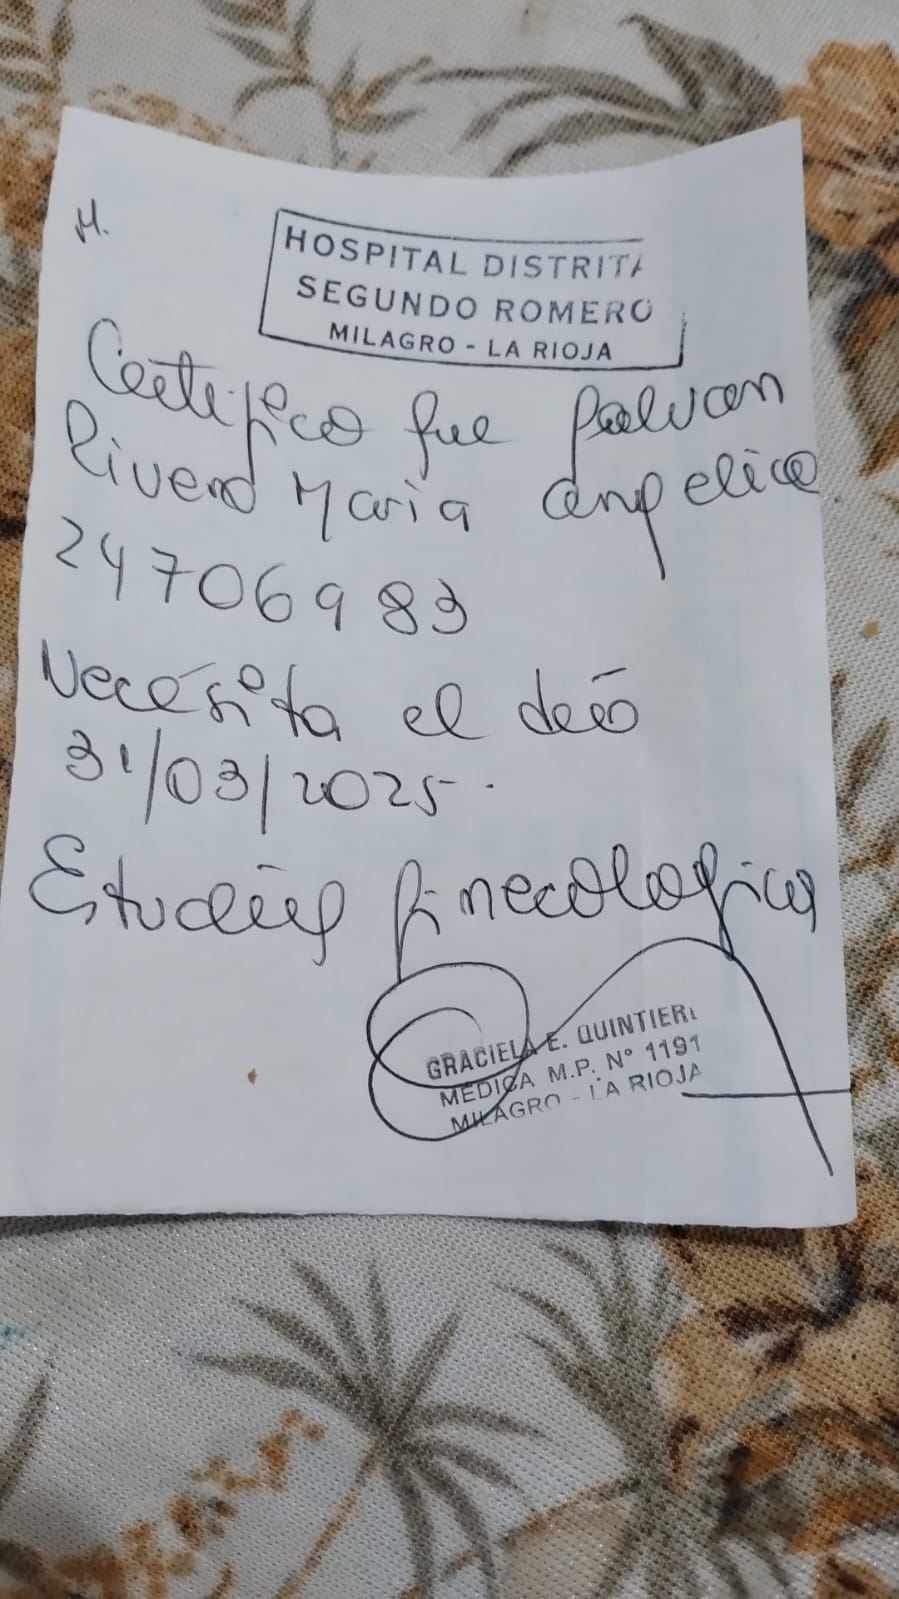 H.
HOSPITAL DISTRITA
SEGUNDO ROMERO
MILAGRO - LA RIOJA
Certifico que Galvan
Rivero Maria Angelica
24706983
Necesita el día
31/03/2025.
Estudios ginecologicos
GRACIELA E. QUINTIERI
MEDICA M.P. N° 1191
MILAGRO - LA RIOJA